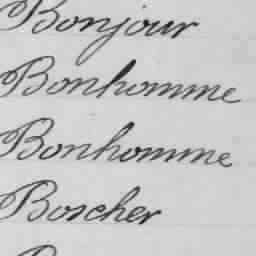 Bonjour
Bonhomme
Bonhomme
Boscher